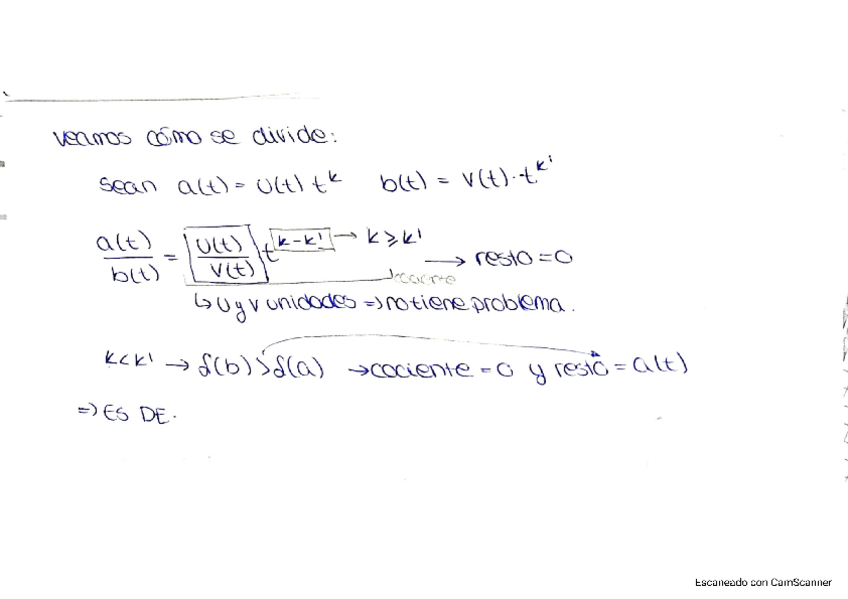 veamos cómo se divide:
sean a(t) = U(t) t^k b(t) = V(t)·t^k'
a(t)/b(t) = U(t)/V(t) t^k-k' → k ≥ k' → resto = 0
cociente
↳ U y V unidades => no tiene problema.
k < k' → δ(b) > δ(a) → cociente = 0 y resto = a(t)
=> ES DE.
Escaneado con CamScanner